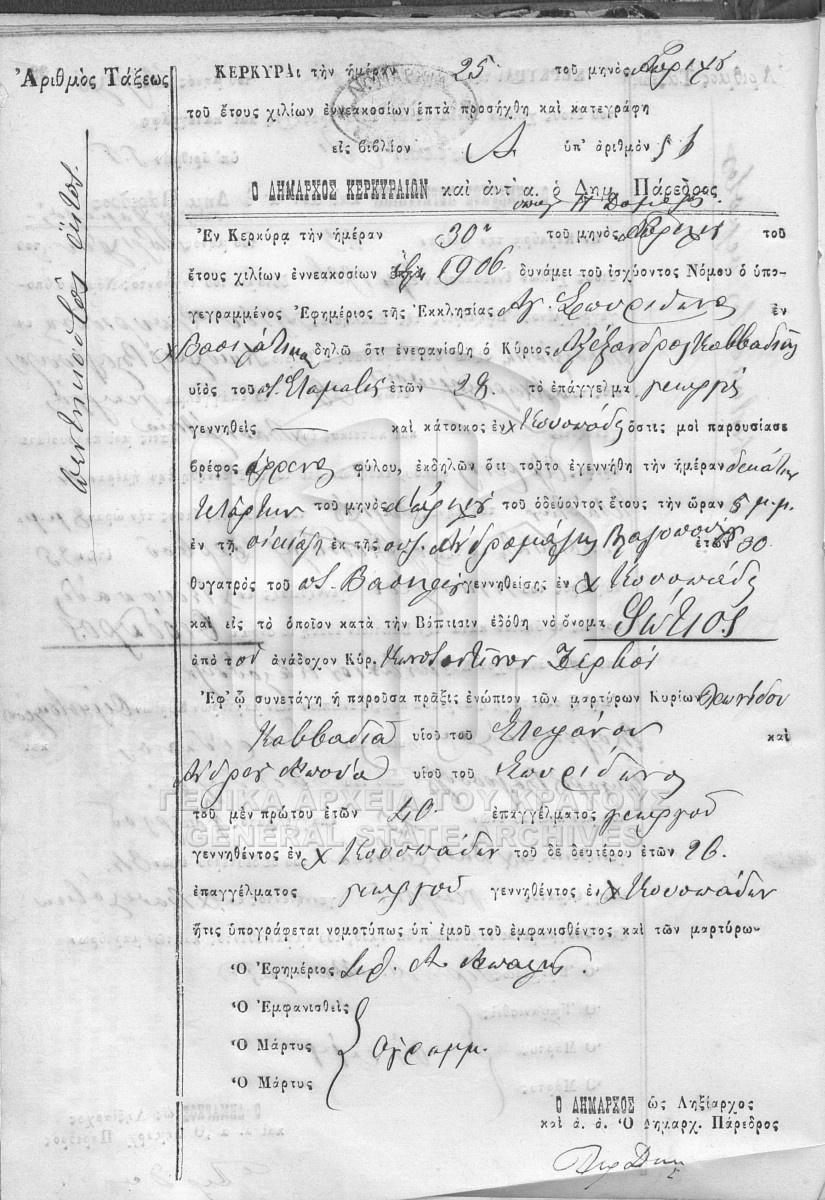 Ἀριθμὸς Τάξεως
πεντηκοστὸς ἕκτος.
ΚΕΡΚΥΡΑι τὴν ἡμέραν 25 τοῦ μηνὸς Ἀπριλίου
τοῦ ἔτους χιλίων ἐννεακοσίων ἑπτὰ προσήχθη καὶ κατεγράφη
εἰς βιβλίον Α ὑπ' ἀριθμὸν
Ο ΔΗΜΑΡΧΟΣ ΚΕΡΚΥΡΑΙΩΝ καὶ ἀντ' α. ὁ Δημ. Πάρεδρος
Ἐν Κερκύρᾳ τὴν ἡμέραν 30 τοῦ μηνὸς Ἀπριλίου τοῦ
ἔτους χιλίων ἐννεακοσίων 1906 δυνάμει τοῦ ἰσχύοντος Νόμου ὁ ὑπο-
γεγραμμένος Ἐφημέριος τῆς Ἐκκλησίας Ἁγ. Σπυρίδωνος ἐν
χ Βασιλάτικα δηλῶ ὅτι ἐνεφανίσθη ὁ Κύριος Ἀλέξανδρος Καββαδίας
υἱὸς τοῦ π. Σταμάτη ἐτῶν 28 τὸ ἐπάγγελμα γεωργός
γεννηθεὶς — καὶ κάτοικος ἐν χ Κουσπάδες ὅστις μοὶ παρουσίασε
βρέφος ἄρρενος φύλου, ἐκδηλῶν ὅτι τοῦτο ἐγεννήθη τὴν ἡμέραν δεκάτην
τετάρτην τοῦ μηνὸς Ἀπριλίου τοῦ ὁδεύοντος ἔτους τὴν ὥραν 5 μ.μ.
ἐν τῇ οἰκίᾳ ἐκ τῆς Ἀνδρομάχης ἐτῶν 30
θυγατρὸς τοῦ π. Βασιλείου γεννηθείσης ἐν χ Κουσπάδες
καὶ εἰς τὸ ὁποῖον κατὰ τὴν Βάπτισιν ἐδόθη τὸ ὄνομα Φώτιος
ἀπὸ τοῦ ἀνάδοχον Κύρ. Κωνσταντῖνον Ζερβόν
Ἐφ' ᾧ συνετάγη ἡ παροῦσα πρᾶξις ἐνώπιον τῶν μαρτύρων Κυρίων Λεωνίδου
Καββαδία υἱοῦ τοῦ Στεφάνου καὶ
Ἀνδρέου Μπούα υἱοῦ τοῦ Σπυρίδωνος
τοῦ μὲν πρώτου ἐτῶν 40 ἐπαγγέλματος γεωργοῦ
γεννηθέντος ἐν χ Κουσπάδων τοῦ δὲ δευτέρου ἐτῶν 26.
ἐπαγγέλματος γεωργοῦ γεννηθέντος ἐν χ Κουσπάδων
ἥτις ὑπογράφεται νομοτύπως ὑπ' ἐμοῦ τοῦ ἐμφανισθέντος καὶ τῶν μαρτύρω-
Ὁ Ἐφημέριος
Ὁ Ἐμφανισθεὶς
Ὁ Μάρτυς ἀγράμμ.
Ὁ Μάρτυς
Ο ΔΗΜΑΡΧΟΣ ὡς Ληξίαρχος
καὶ ἀ. ἀ. Ὁ Δημαρχ. Πάρεδρος
ΓΕΝΙΚΑ ΑΡΧΕΙΑ ΤΟΥ ΚΡΑΤΟΥΣ
GENERAL STATE ARCHIVES